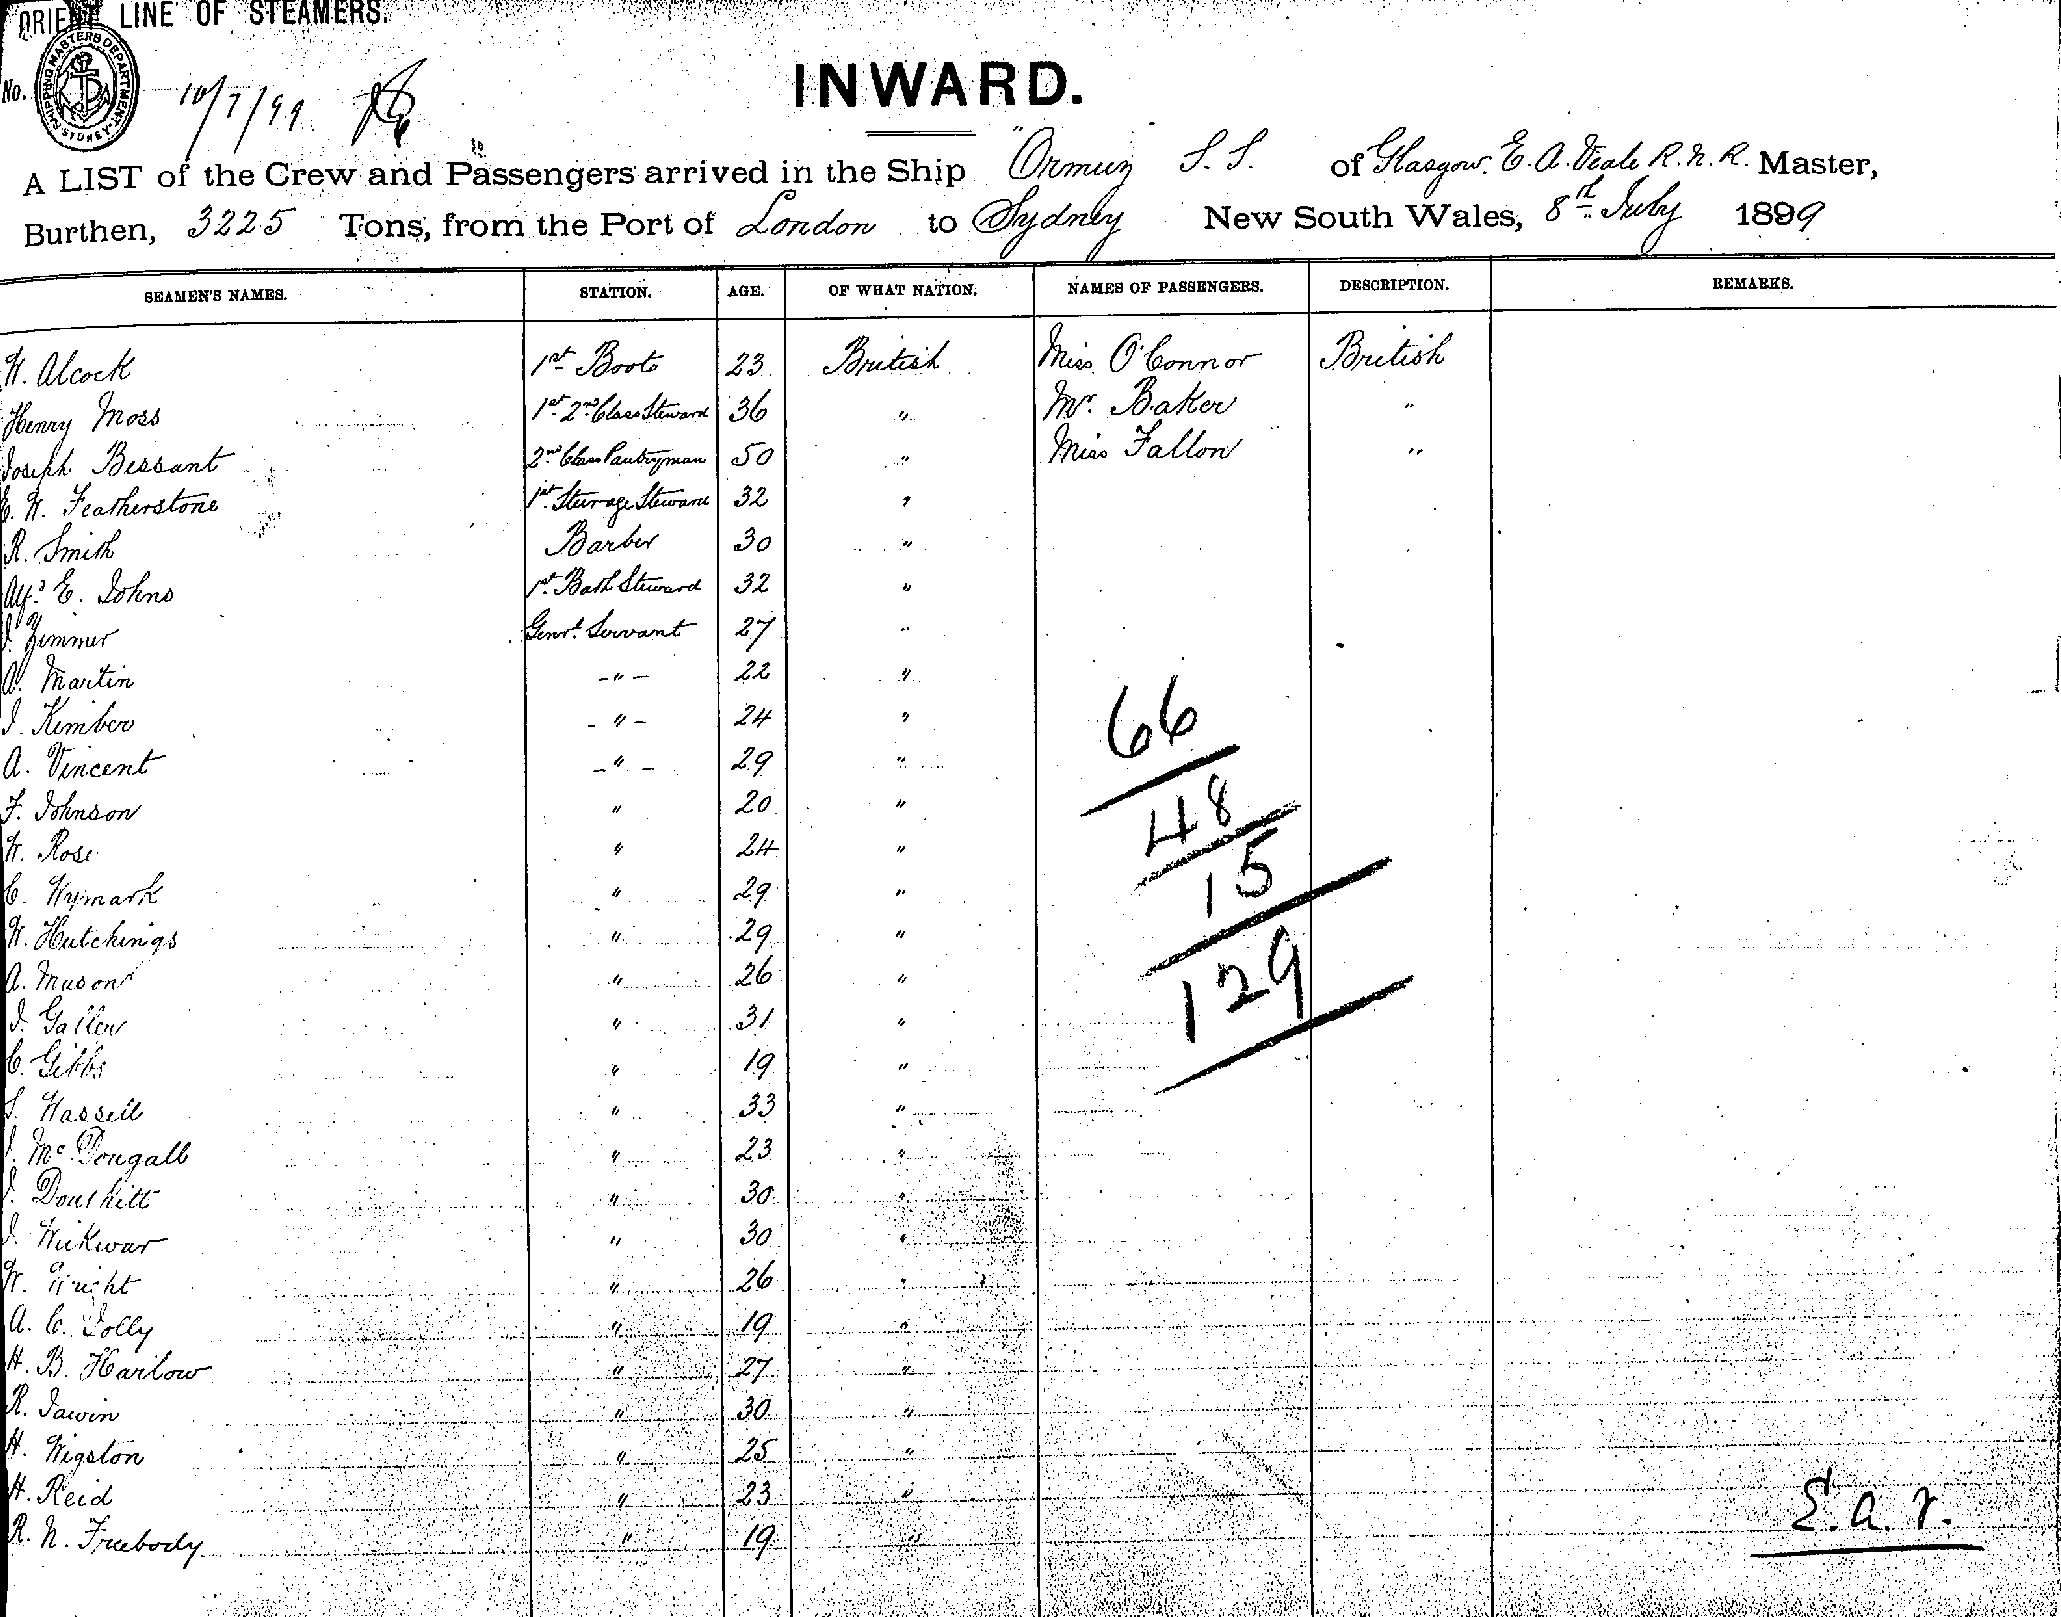 ORIENT LINE OF STEAMERS.
No.
SHIPPING MASTERS DEPARTMENT SYDNEY
10/7/99
INWARD.
A LIST of the Crew and Passengers arrived in the Ship "Ormuz S.S. of Glasgow. E. A. Veale R.N.R. Master,
Burthen, 3225 Tons, from the Port of London to Sydney New South Wales, 8th July 1899
SEAMEN'S NAMES. STATION. AGE. OF WHAT NATION. NAMES OF PASSENGERS. DESCRIPTION. REMARKS.
W. Alcock 1st Boots 23 British Miss O'Connor British
Henry Moss 1st 2nd Class Steward 36 " Mr. Baker "
Joseph Bessant 2nd Class Pantryman 50 " Miss Fallon "
E. W. Featherstone 1st Steerage Steward 32 "
R. Smith Barber 30 "
Alfd E. Johns 1st Bath Steward 32 "
J. Zimmer Genrl Servant 27 "
A. Martin - " - 22 "
J. Kimber - " - 24 "
A. Vincent - " - 29 "
F. Johnson " 20 "
W. Rose " 24 "
C. Wymark " 29 "
W. Hutchings " 29 "
A. Mason " 26 "
J. Gallew " 31 "
C. Gibbs " 19 "
S. Wassell " 33 "
J. McDougall " 23 "
J. Douthitt " 30 "
J. Wickwar " 30 "
W. Wright " 26 "
A. C. Jolly " 19 "
H. B. Harlow " 27 "
R. " 30 "
H. Wigston " 25 "
H. Reid " 23 "
R. N. Freebody " 19 "
66
48
15
129
E.A.V.